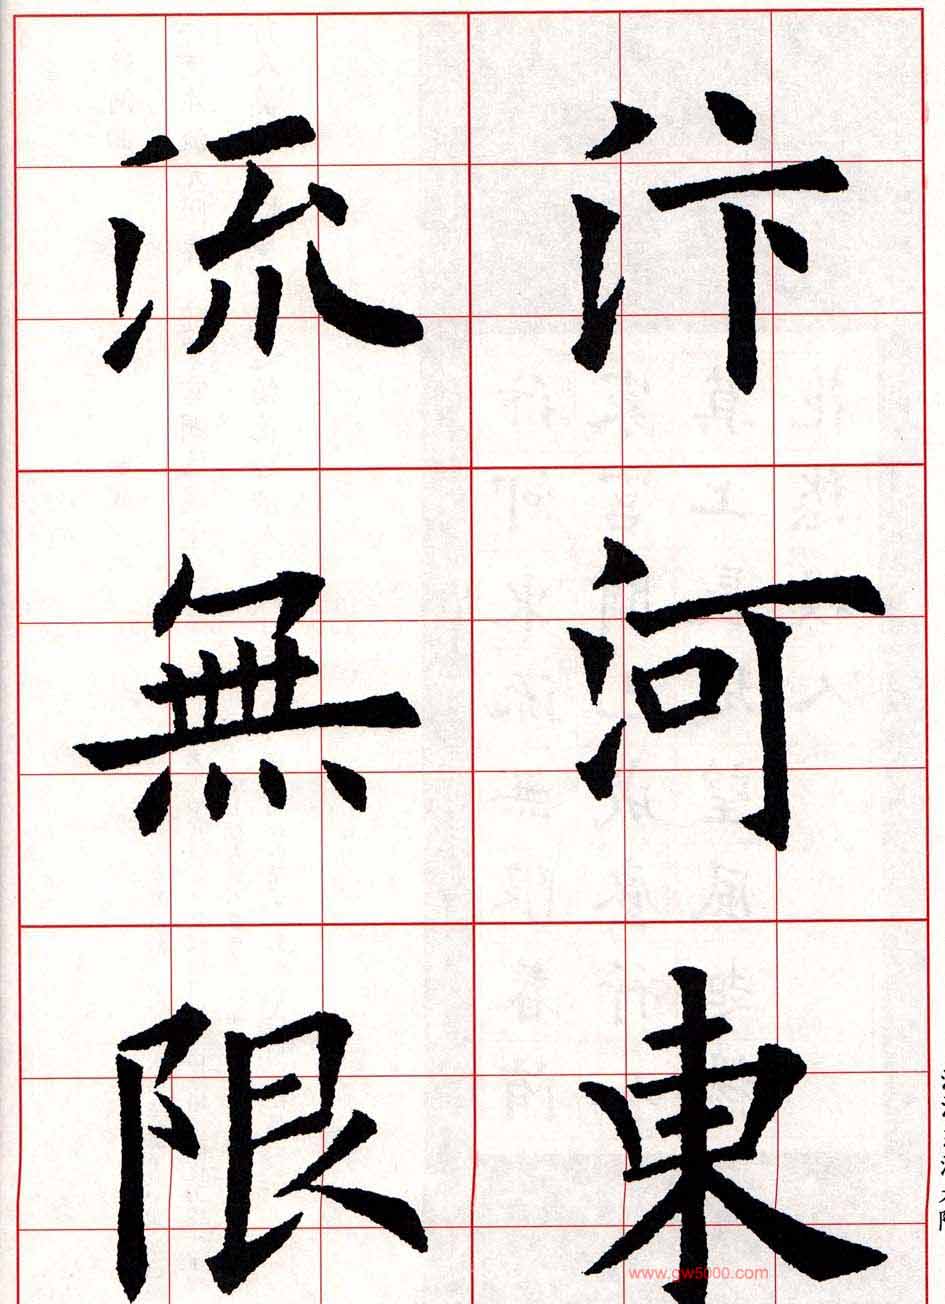 汴河東
流無限
www.gw5000.com